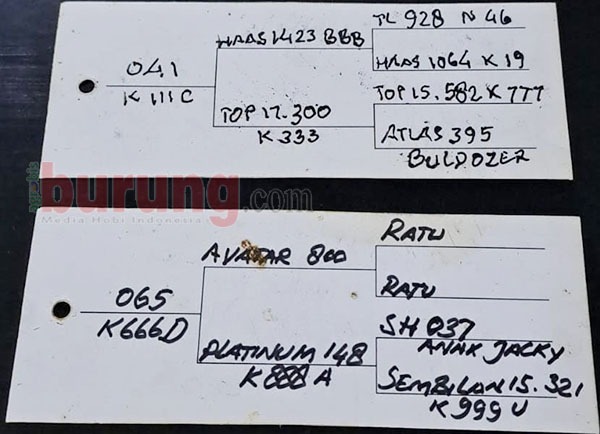 TL 928 N 46
HAAS 1423 BBB
HAAS 1064 K 19
041
K 111 C
TOP 15.582 K 777
TOP 17.300
K 333
ATLAS 395
BULDOZER
burung.com
Media Hobi Indonesia
RATU
AVATAR 800
RATU
065
K666D
SH 037
ANAK JACKY
PLATINUM 148
K 888 A
SEMBILAN 15.321
K 999 U